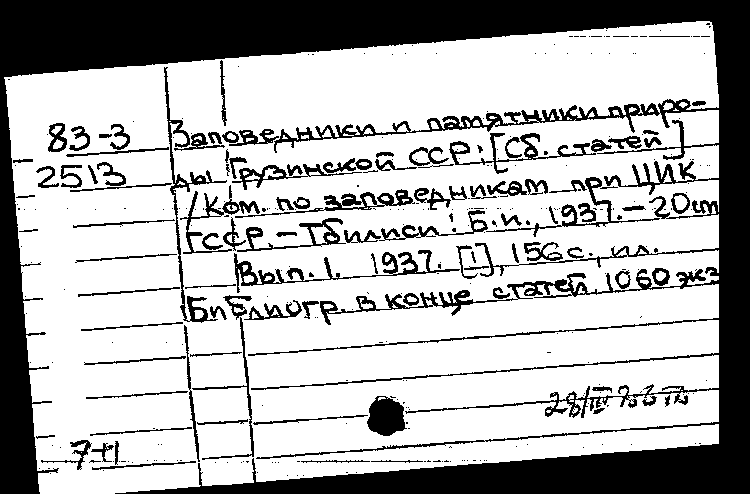 83-3
2513
Заповедники и памятники приро-
ды Грузинской ССР: [Сб. статей]
/Ком. по заповедникам при ЦИК
ГССР. – Тбилиси: Б.и., 1937. – 20см
Вып. 1. 1937. [1], 156 с., ил.
Библиогр. в конце статей. 1060 экз
28/III
7+1